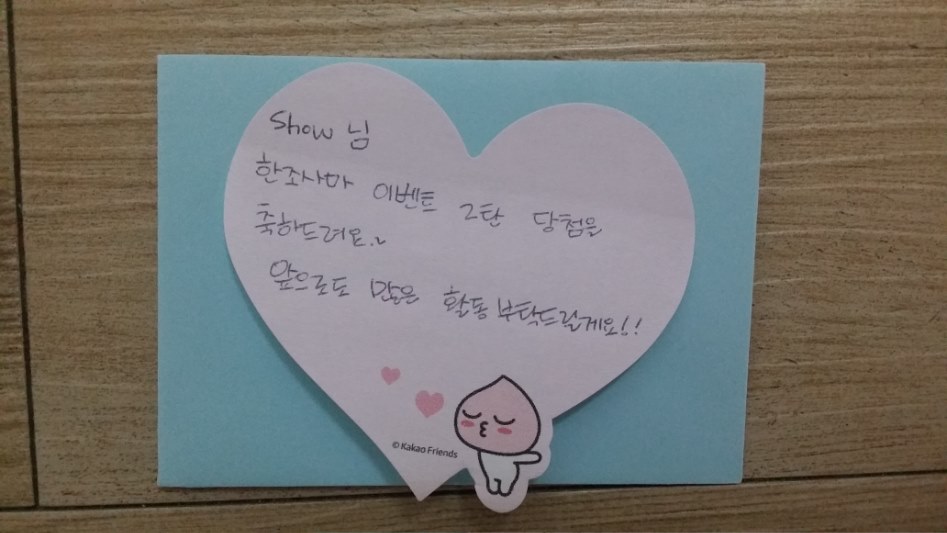 Show 님
한조사마 이벤트 2탄 당첨을
축하드려요.~
앞으로도 많은 활동 부탁드릴게요!!
© Kakao Friends